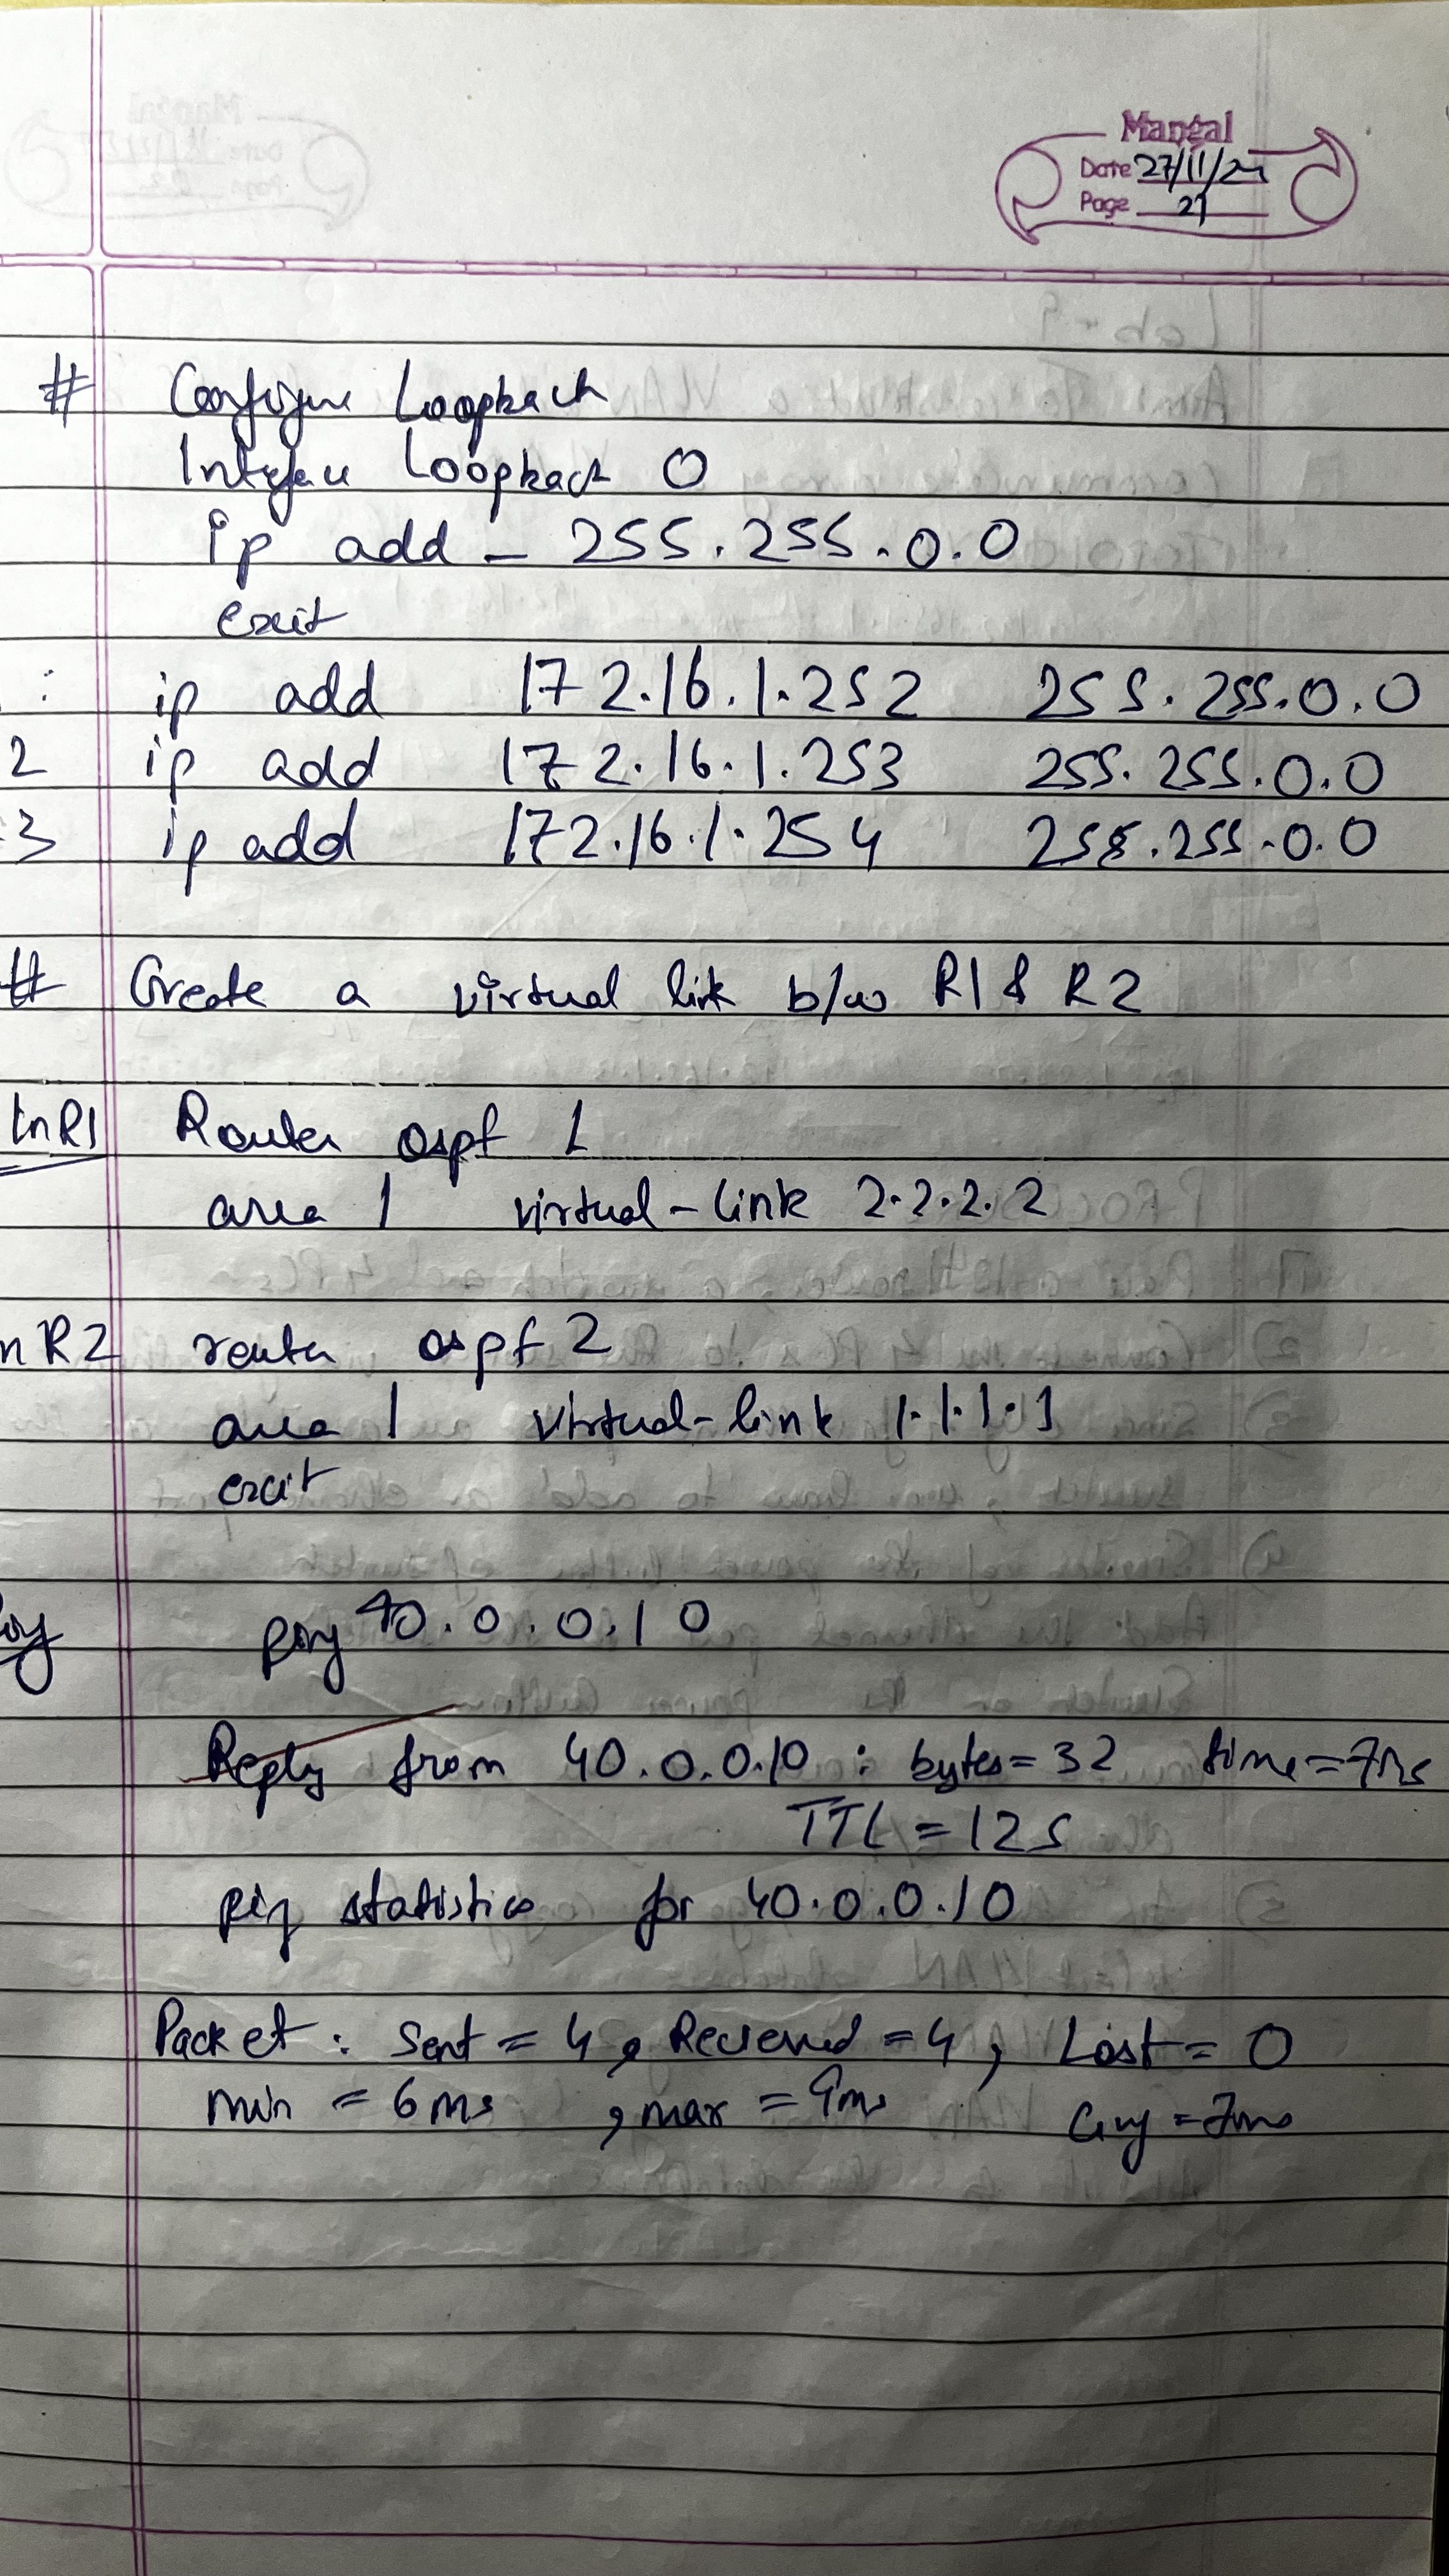 Mangal
Date 27/11/24
Page 21
# Configure Loopback
Interface Loopback 0
ip add - 255.255.0.0
exit
: ip add 172.16.1.252 255.255.0.0
2 ip add 172.16.1.253 255.255.0.0
3 ip add 172.16.1.254 255.255.0.0
# Create a virtual link b/w R1 & R2
In R1 Router ospf 1
area 1 virtual-link 2.2.2.2
n R2 router ospf 2
area 1 virtual-link 1.1.1.1
exit
ping 40.0.0.10
Reply from 40.0.0.10 : bytes=32 time=7ms
TTL = 125
ping statistics for 40.0.0.10
Packet : Sent = 4, Recieved = 4, Lost = 0
min = 6ms , max = 9ms Avg = 7ms